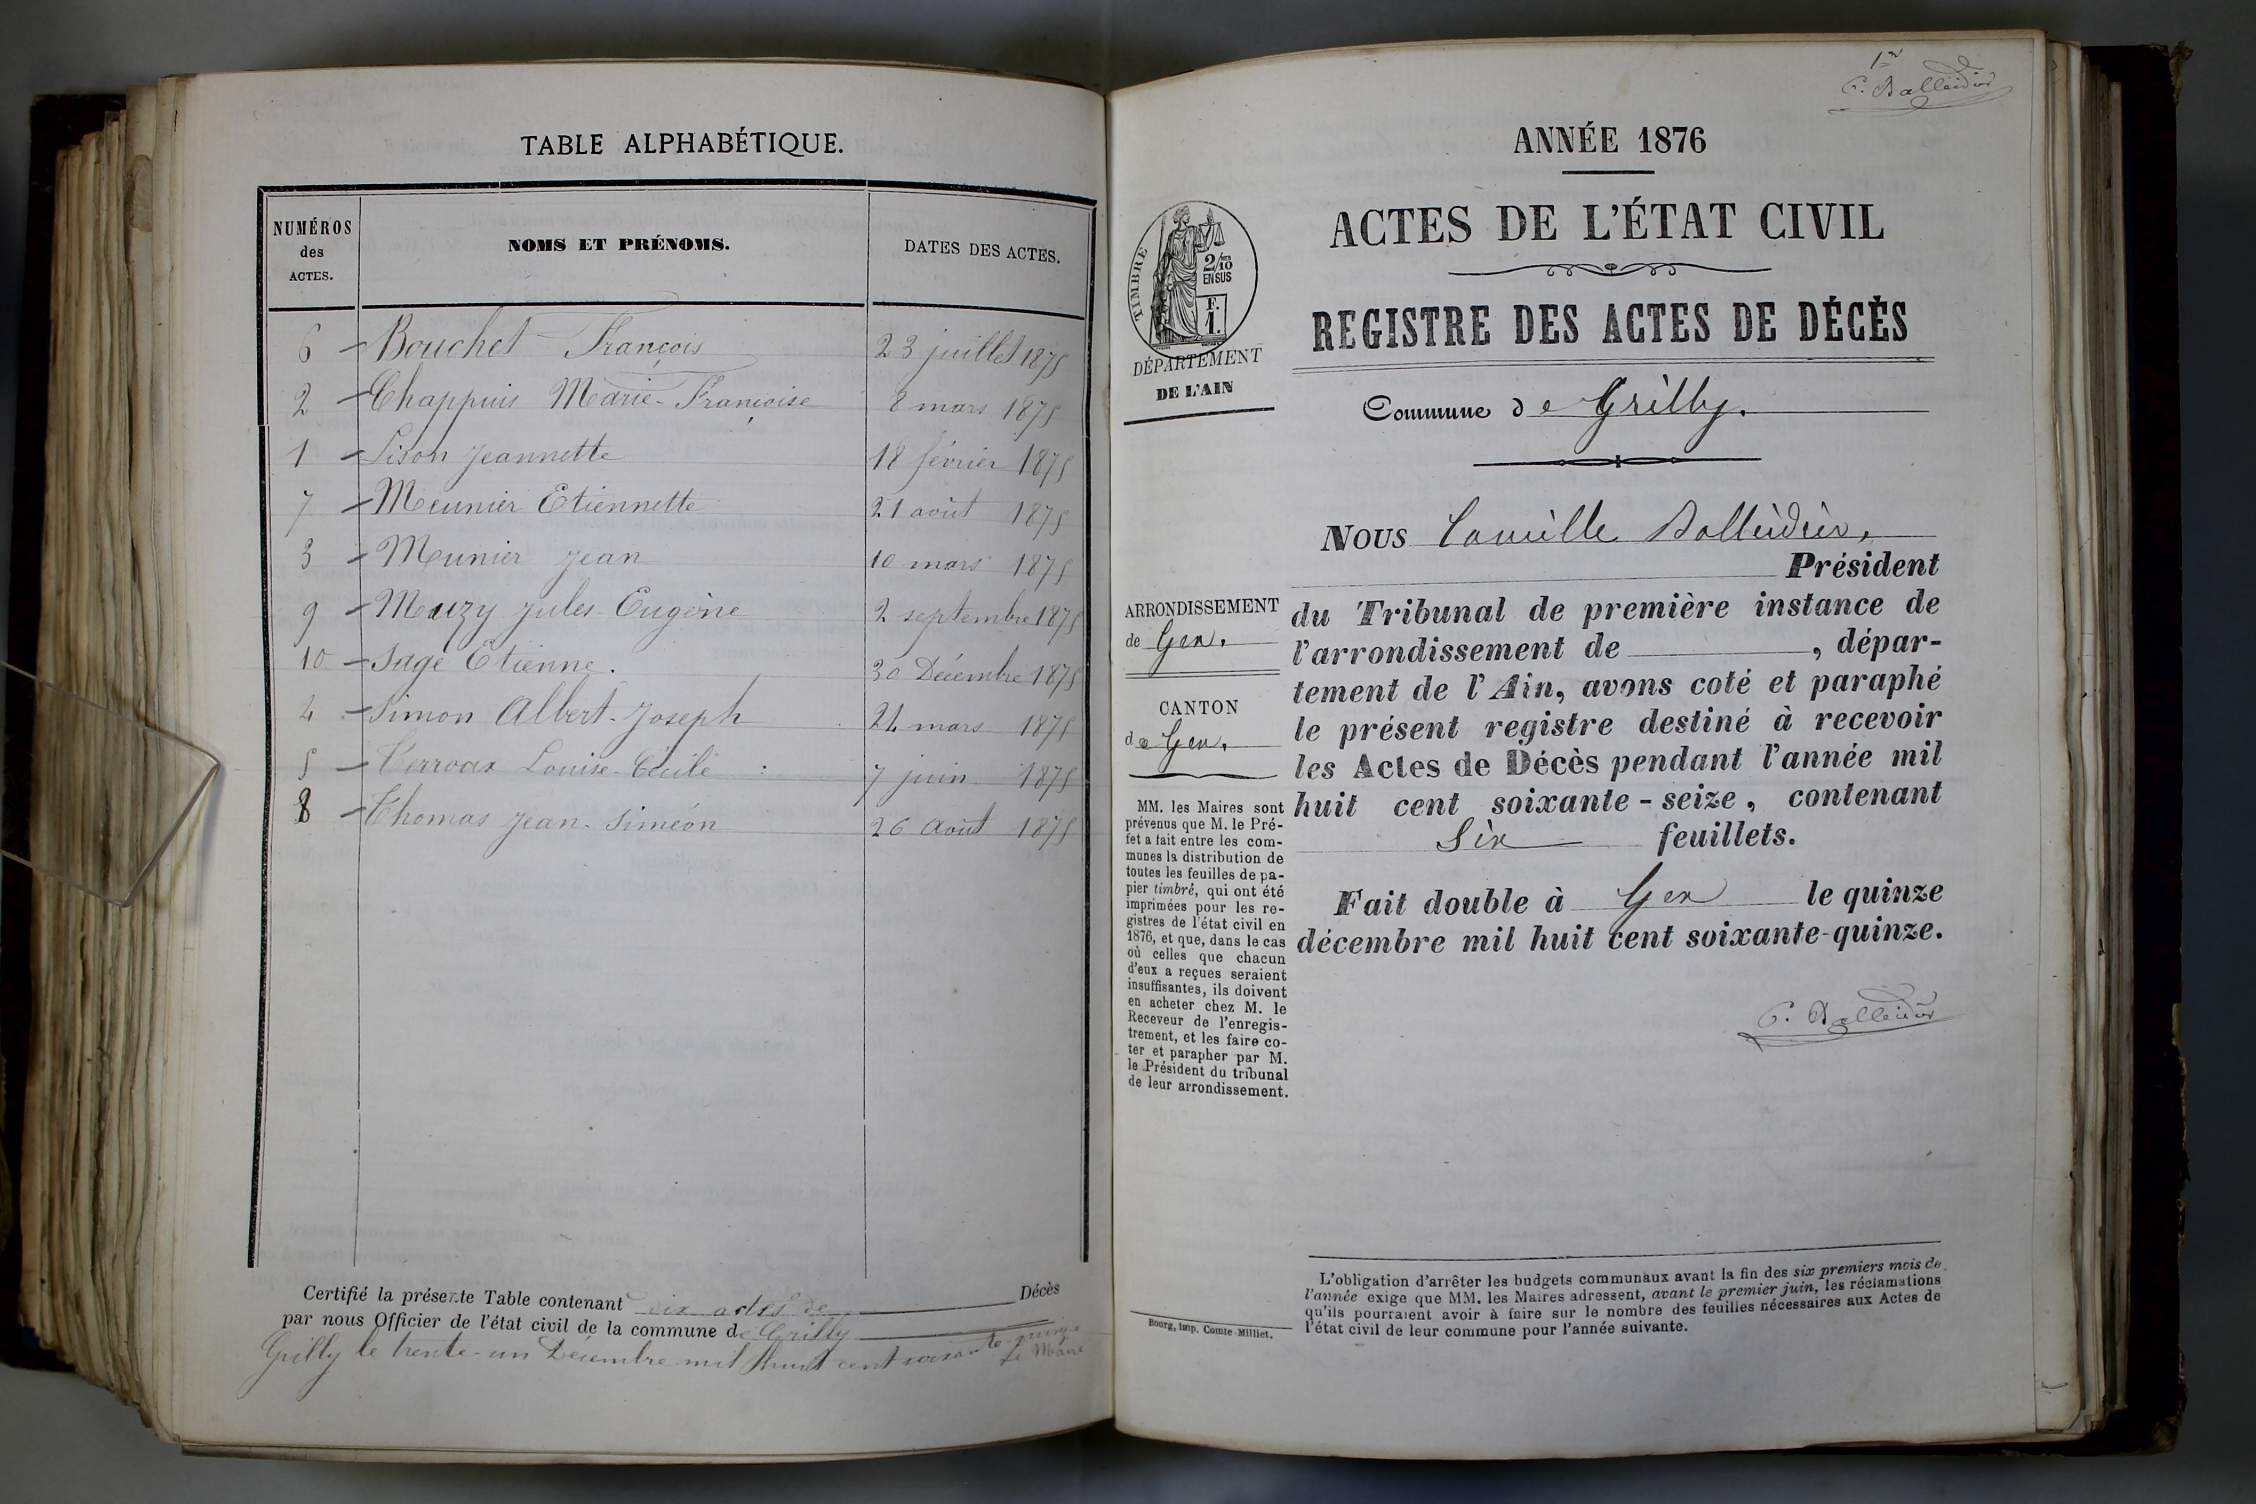 TABLE ALPHABÉTIQUE.
NUMÉROS des ACTES.
NOMS ET PRÉNOMS.
DATES DES ACTES.
6 – Bouchet François 23 juillet 1875
2 – Chappuis Marie-Françoise 8 mars 1875
1 – Lison Jeannette 18 février 1875
7 – Meunier Etiennette 21 août 1875
3 – Meunier Jean 10 mars 1875
9 – Mauzy Jules-Eugène 2 septembre 1875
10 – Sage Etienne. 30 Décembre 1875
4 – Simon Albert-Joseph 24 mars 1875
5 – Louise-Cécile 7 juin 1875
8 – Thomas Jean-Siméon 26 août 1875
Certifié la présente Table contenant dix actes de Décès
par nous Officier de l'état civil de la commune de Grilly
Grilly le trente-un Décembre mil huit cent soixante-quinze
Le Maire
1er
C. Balleidier
ANNÉE 1876
ACTES DE L'ÉTAT CIVIL
REGISTRE DES ACTES DE DÉCÈS
TIMBRE
2/10 EN SUS
F. 1.
DÉPARTEMENT
DE L'AIN
Commune de Grilly.
Nous Camille Balleidier,
Président
du Tribunal de première instance de
l'arrondissement de , dépar-
tement de l'Ain, avons coté et paraphé
le présent registre destiné à recevoir
les Actes de Décès pendant l'année mil
huit cent soixante-seize, contenant
Six feuillets.
Fait double à Gex le quinze
décembre mil huit cent soixante-quinze.
C. Balleidier
ARRONDISSEMENT
de Gex.
CANTON
de Gex.
MM. les Maires sont
prévenus que M. le Pré-
fet a fait entre les com-
munes la distribution de
toutes les feuilles de pa-
pier timbré, qui ont été
imprimées pour les re-
gistres de l'état civil en
1876, et que, dans le cas
où celles que chacun
d'eux a reçues seraient
insuffisantes, ils doivent
en acheter chez M. le
Receveur de l'enregis-
trement, et les faire co-
ter et parapher par M.
le Président du tribunal
de leur arrondissement.
Bourg, imp. Comte-Milliet.
L'obligation d'arrêter les budgets communaux avant la fin des six premiers mois de
l'année exige que MM. les Maires adressent, avant le premier juin, les réclamations
qu'ils pourraient avoir à faire sur le nombre des feuilles nécessaires aux Actes de
l'état civil de leur commune pour l'année suivante.